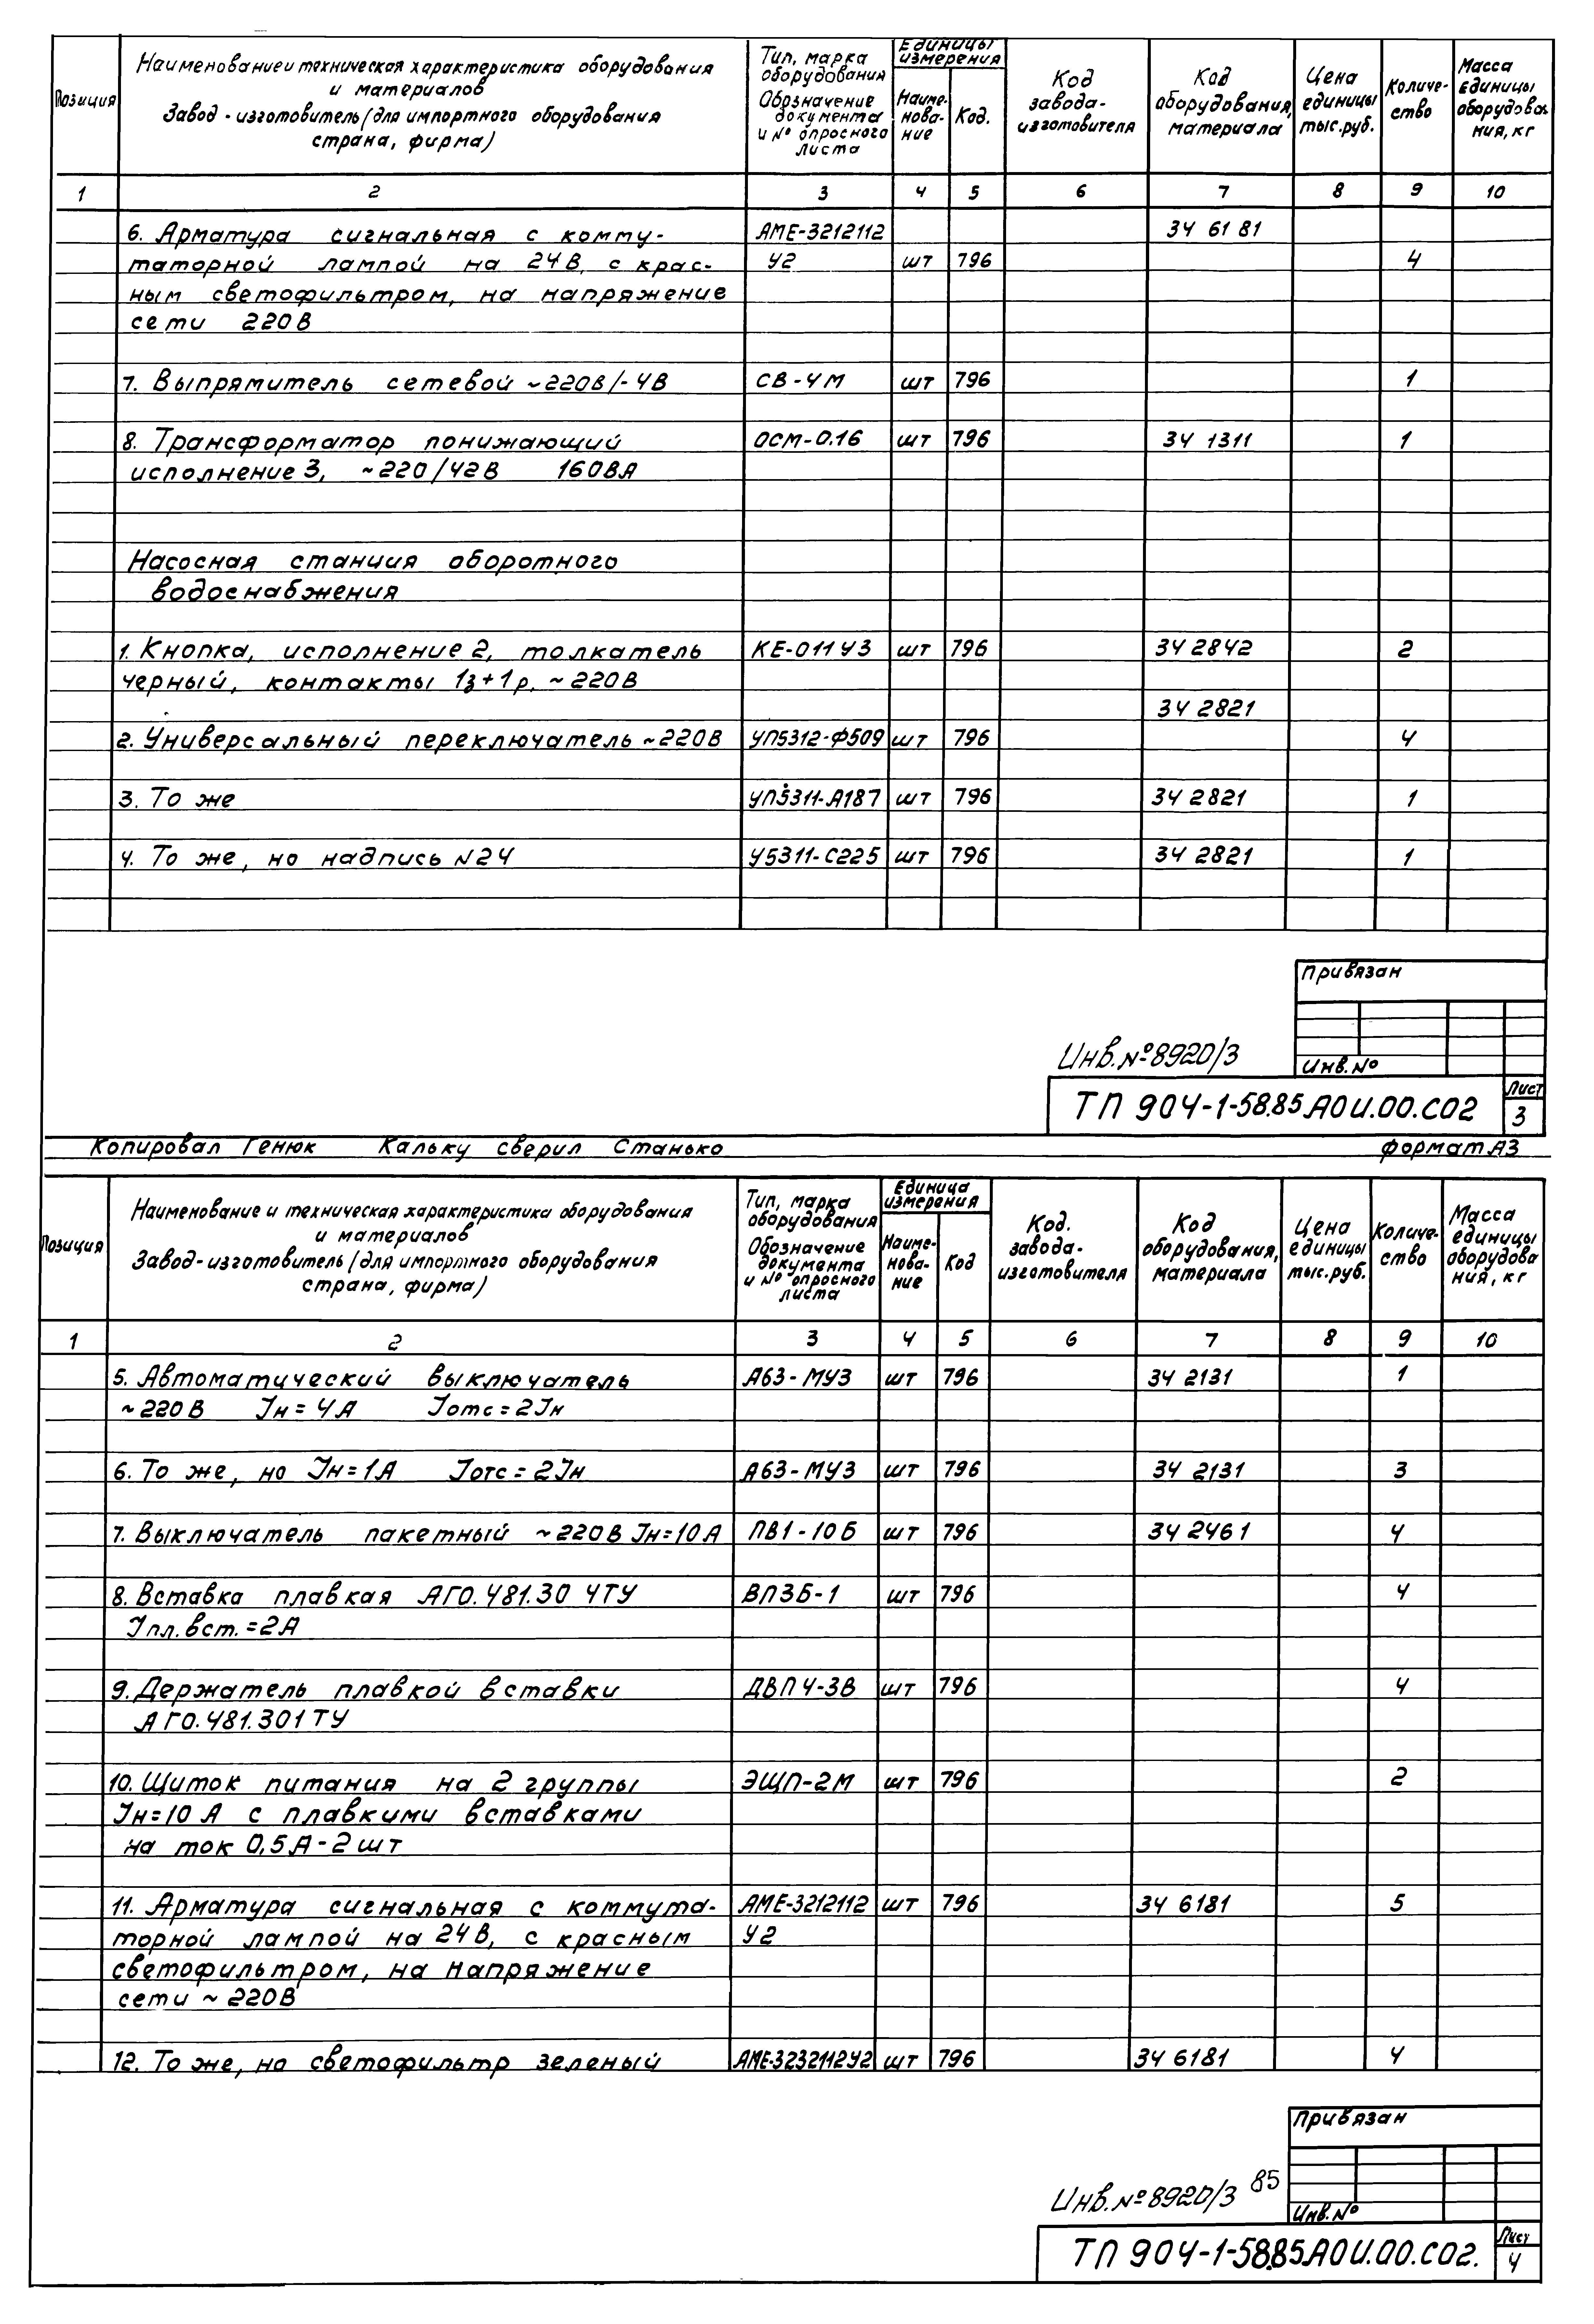 Позиция
Наименование и техническая характеристика оборудования
и материалов
Завод-изготовитель (для импортного оборудования
страна, фирма)
Тип, марка
оборудования
Обозначение
документа
и № опросного
листа
Единицы
измерения
Наиме-
нова-
ние
Код.
Код
завода-
изготовителя
Код
оборудования,
материала
Цена
единицы
тыс.руб.
Количе-
ство
Масса
единицы
оборудова-
ния, кг
1 2 3 4 5 6 7 8 9 10
6. Арматура сигнальная с комму- АМЕ-3212112 34 6181
таторной лампой на 24В, с крас- У2 шт 796 4
ным светофильтром, на напряжение
сети 220В
7. Выпрямитель сетевой ~220В/-4В СВ-4М шт 796 1
8. Трансформатор понижающий ОСМ-0.16 шт 796 34 1311 1
исполнение 3, ~220/42В 160ВА
Насосная станция оборотного
водоснабжения
1. Кнопка, исполнение 2, толкатель КЕ-011У3 шт 796 34 2842 2
черный, контакты 1з+1р, ~220В
34 2821
2. Универсальный переключатель ~220В УП5312-Ф509 шт 796 4
3. То же УП5311-А187 шт 796 34 2821 1
4. То же, но надпись N24 У5311-С225 шт 796 34 2821 1
Привязан
Инв.№8920/3
Инв.№
ТП 904-1-58.85 АОИ.00.СО2
Лист
3
Копировал Генюк Кальку сверил Станько формат А3
Позиция
Наименование и техническая характеристика оборудования
и материалов
Завод-изготовитель (для импортного оборудования
страна, фирма)
Тип, марка
оборудования
Обозначение
документа
и № опросного
листа
Единица
измерения
Наиме-
нова-
ние
Код
Код.
завода-
изготовителя
Код
оборудования,
материала
Цена
единицы
тыс.руб.
Количе-
ство
Масса
единицы
оборудова
ния, кг
1 2 3 4 5 6 7 8 9 10
5. Автоматический выключатель А63-МУ3 шт 796 34 2131 1
~220В Iн=4А Iотс=2Iн
6. То же, но Iн=1А Iотс=2Iн А63-МУ3 шт 796 34 2131 3
7. Выключатель пакетный ~220В Iн=10А ПВ1-10Б шт 796 34 2461 4
8. Вставка плавкая АГО.481.30 4ТУ ВП3Б-1 шт 796 4
Iпл.вст.=2А
9. Держатель плавкой вставки ДВП4-3В шт 796 4
АГО.481.301ТУ
10. Щиток питания на 2 группы ЭЩП-2М шт 796 2
Iн=10А с плавкими вставками
на ток 0,5А-2шт
11. Арматура сигнальная с коммута- АМЕ-3212112 шт 796 34 6181 5
торной лампой на 24В, с красным У2
светофильтром, на напряжение
сети ~220В
12. То же, но светофильтр зеленый АМЕ-323211242 шт 796 34 6181 4
Привязан
Инв.№8920/3 85
Инв.№
ТП 904-1-58.85 АОИ.00.СО2.
Лист
4